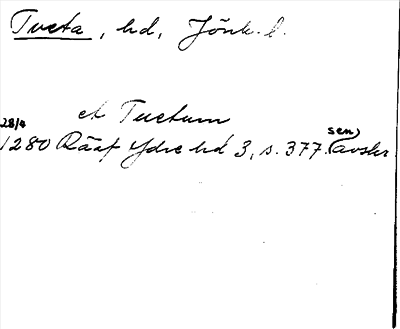 Tveta, hd, Jönk. l.
et Tuetum
28/4
sen)
1280 Rääf Ydre hd 3, s. 377. (avskr.